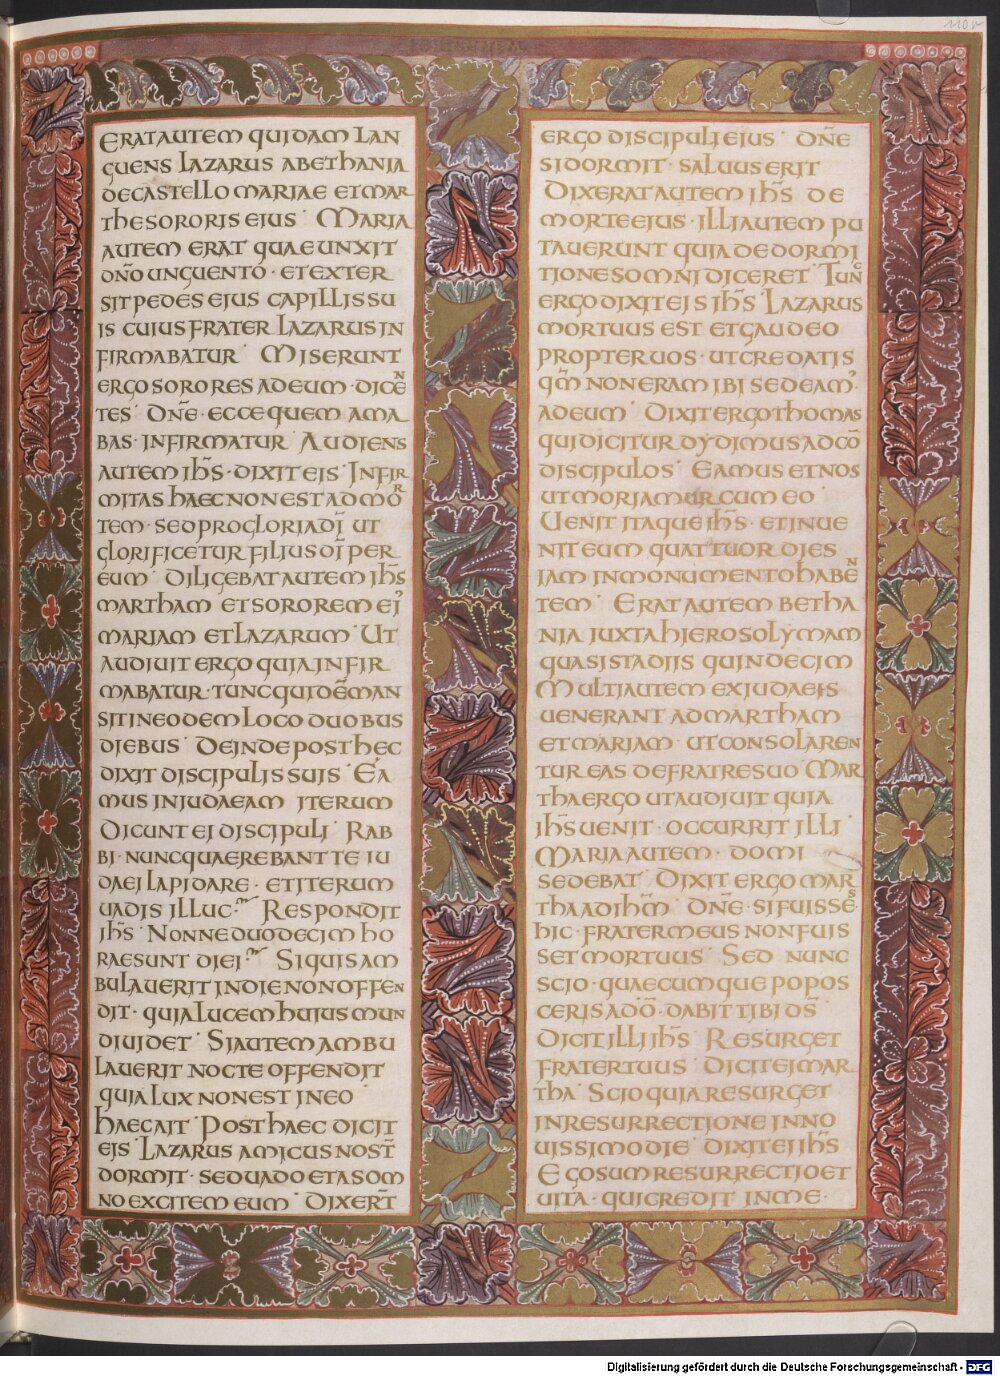 110r
ERAT AUTEM QUIDAM LAN
GUENS LAZARUS A BETHANIA
DE CASTELLO MARIAE ET MAR
THE SORORIS EIUS · MARIA
AUTEM ERAT QUAE UNXIT
DNO UNGUENTO · ET EXTER
SIT PEDES EIUS CAPILLIS SU
IS CUIUS FRATER LAZARUS IN
FIRMABATUR · MISERUNT
ERGO SORORES AD EUM · DICEN
TES · DN̄E · ECCE QUEM AMA
BAS · INFIRMATUR · AUDIENS
AUTEM IH̄S · DIXIT EIS · INFIR
MITAS HAEC NON EST AD MOR
TEM · SED PRO GLORIA DĪ UT
GLORIFICETUR FILIUS DĪ PER
EUM · DILIGEBAT AUTEM IH̄S
MARTHAM ET SOROREM EI᾽
MARIAM ET LAZARUM · UT
AUDIUIT ERGO QUIA INFIR
MABATUR · TUNC QUIDĒ MAN
SIT IN EODEM LOCO DUOBUS
DIEBUS · DEINDE POST HEC
DIXIT DISCIPULIS SUIS · EA
MUS IN IUDAEAM ITERUM
DICUNT EI DISCIPULI · RAB
BI · NUNC QUAEREBANT TE IU
DAEI LAPIDARE · ET ITERUM
UADIS ILLUC · RESPONDIT
IH̄S · NONNE DUODECIM HO
RAE SUNT DIEI · SI QUIS AM
BULAUERIT IN DIE NON OFFEN
DIT · QUIA LUCEM HUIUS MUN
DI UIDET · SI AUTEM AMBU
LAUERIT NOCTE OFFENDIT
QUIA LUX NON EST IN EO
HAEC AIT · POST HAEC DICIT
EIS · LAZARUS AMICUS NOST̄
DORMIT · SED UADO ET A SOM
NO EXCITEM EUM · DIXER̄T
ERGO DISCIPULI EIUS · DN̄E
SI DORMIT · SALUUS ERIT
DIXERAT AUTEM IH̄S DE
MORTE EIUS · ILLI AUTEM PU
TAUERUNT QUIA DE DORMI
TIONE SOMNI DICERET · TUNC
ERGO DIXIT EIS IH̄S · LAZARUS
MORTUUS EST ET GAUDEO
PROPTER UOS · UT CREDATIS
QM̄ NON ERAM IBI SED EAM᾽
AD EUM · DIXIT ERGO THOMAS
QUI DICITUR DYDIMUS AD CŌ
DISCIPULOS · EAMUS ET NOS
UT MORIAMUR CUM EO ·
UENIT ITAQUE IH̄S · ET INUE
NIT EUM QUATTUOR DIES
IAM IN MONUMENTO HABEN
TEM · ERAT AUTEM BETHA
NIA IUXTA HIEROSOLYMAM
QUASI STADIIS QUINDECIM
MULTI AUTEM EX IUDAEIS
UENERANT AD MARTHAM
ET MARIAM · UT CONSOLAREN
TUR EAS DE FRATRE SUO · MAR
THA ERGO UT AUDIUIT QUIA
IH̄S UENIT · OCCURRIT ILLI
MARIA AUTEM · DOMI
SEDEBAT · DIXIT ERGO MAR
THA AD IH̄M · DN̄E · SI FUISSES
HIC · FRATER MEUS NON FUIS
SET MORTUUS · SED NUNC
SCIO · QUAECUMQUE POPOS
CERIS A DŌ · DABIT TIBI DS̄
DICIT ILLI IH̄S · RESURGET
FRATER TUUS · DICIT EI MAR
THA · SCIO QUIA RESURGET
IN RESURRECTIONE IN NO
UISSIMO DIE · DIXIT EI IH̄S
EGO SUM RESURRECTIO ET
UITA · QUI CREDIT IN ME ·
Digitalisierung gefördert durch die Deutsche Forschungsgemeinschaft - DFG